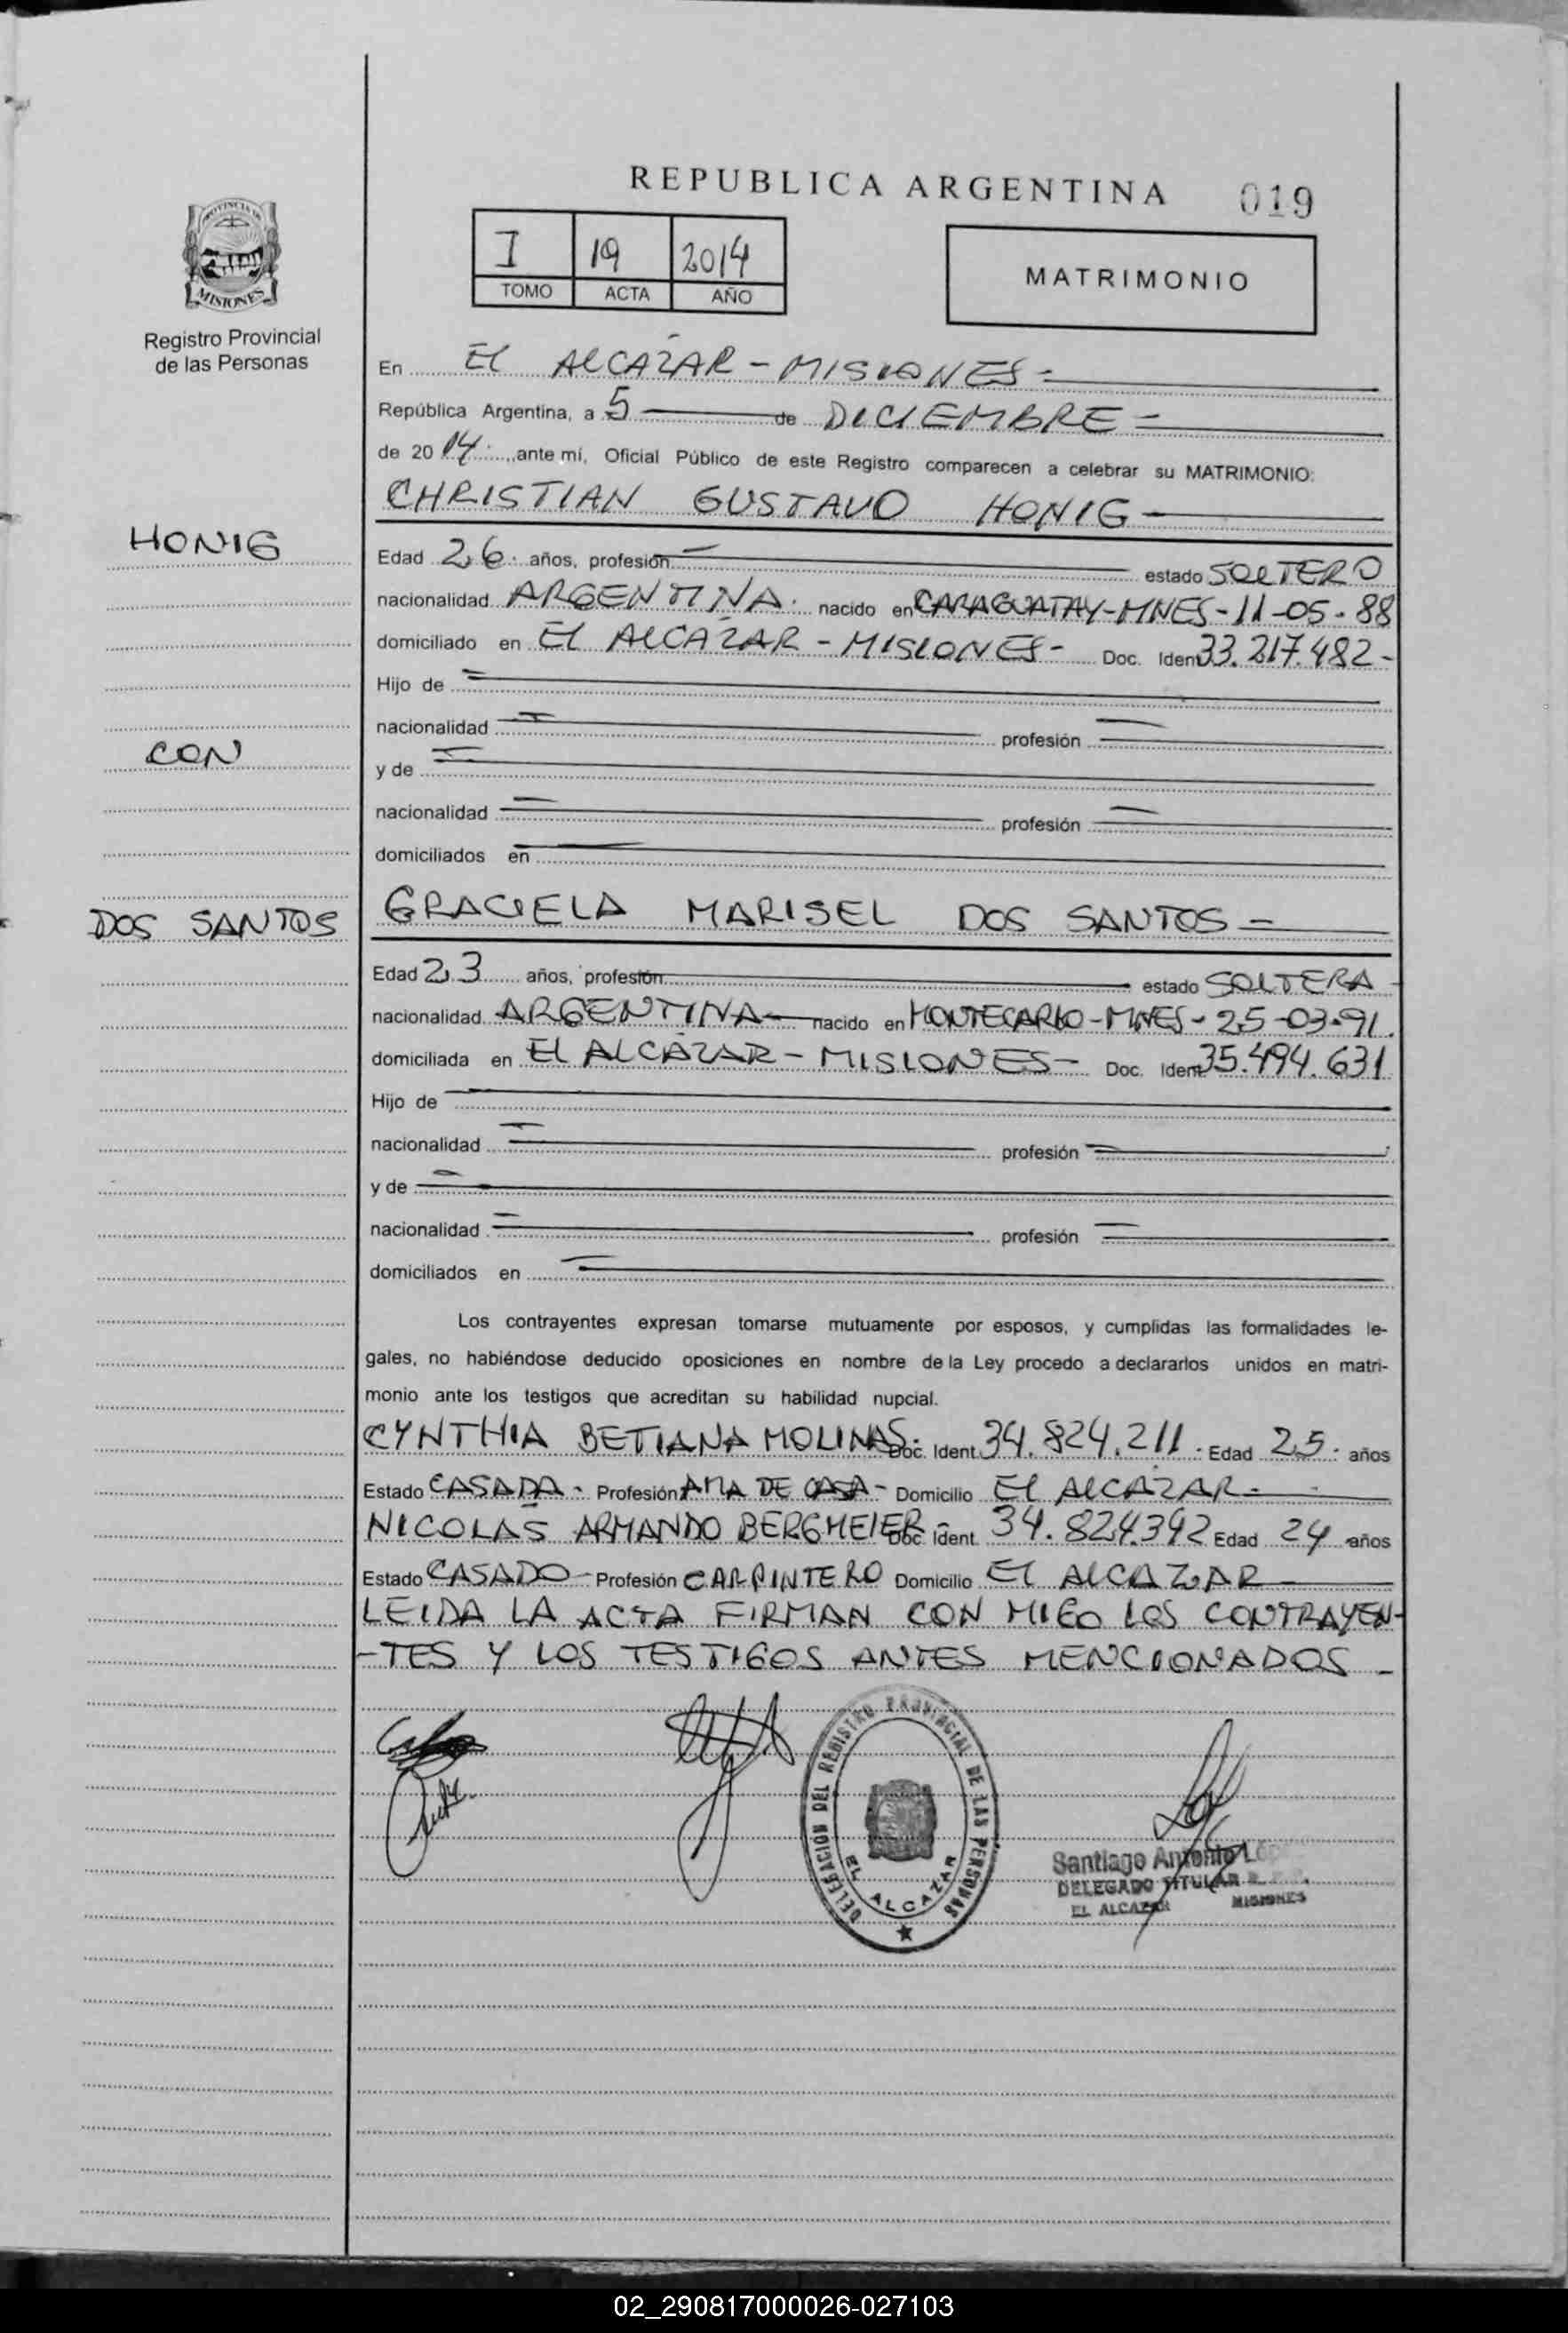 REPUBLICA ARGENTINA 019
PROVINCIA DE
MISIONES
Registro Provincial
de las Personas
I 19 2014
TOMO ACTA AÑO
MATRIMONIO
En El AlCAZAR - MISIONES =
República Argentina, a 5 de DICIEMBRE =
de 2014. ,ante mí, Oficial Público de este Registro comparecen a celebrar su MATRIMONIO:
CHRISTIAN GUSTAVO HONIG
HONIG
Edad 26. años, profesión estado SOLTERO
nacionalidad ARGENTINA. nacido en CARAGUATAY-MNES-11-05-88
domiciliado en El AlCAZAR - MISIONES - Doc. Ident 33.217.482-
Hijo de
nacionalidad profesión
CON
y de
nacionalidad profesión
domiciliados en
DOS SANTOS
GRACIELA MARISEL DOS SANTOS =
Edad 23 años, profesión estado SOLTERA -
nacionalidad ARGENTINA nacido en MONTECARLO-MNES- 25-03-91.
domiciliada en El ALCAZAR - MISIONES - Doc. Ident 35.494.631
Hijo de
nacionalidad profesión
y de
nacionalidad profesión
domiciliados en
Los contrayentes expresan tomarse mutuamente por esposos, y cumplidas las formalidades le-
gales, no habiéndose deducido oposiciones en nombre de la Ley procedo a declararlos unidos en matri-
monio ante los testigos que acreditan su habilidad nupcial.
CYNTHIA BETIANA MOLINAS. Doc. Ident. 34.824.211. Edad 25. años
Estado CASADA - Profesión AMA DE CASA - Domicilio El AlCAZAR -
NICOLAS ARMANDO BERGMEIER Doc. Ident. 34.824.392 Edad 24 años
Estado CASADO - Profesión CARPINTERO Domicilio El AlCAZAR
LEIDA LA ACTA FIRMAN CON MIGO LOS CONTRAYEN-
-TES Y LOS TESTIGOS ANTES MENCIONADOS -
DELEGACION DEL REGISTRO PROVINCIAL DE LAS PERSONAS
EL ALCAZAR
Santiago Antonio López
DELEGADO TITULAR R.
EL ALCAZAR MISIONES
02_290817000026-027103